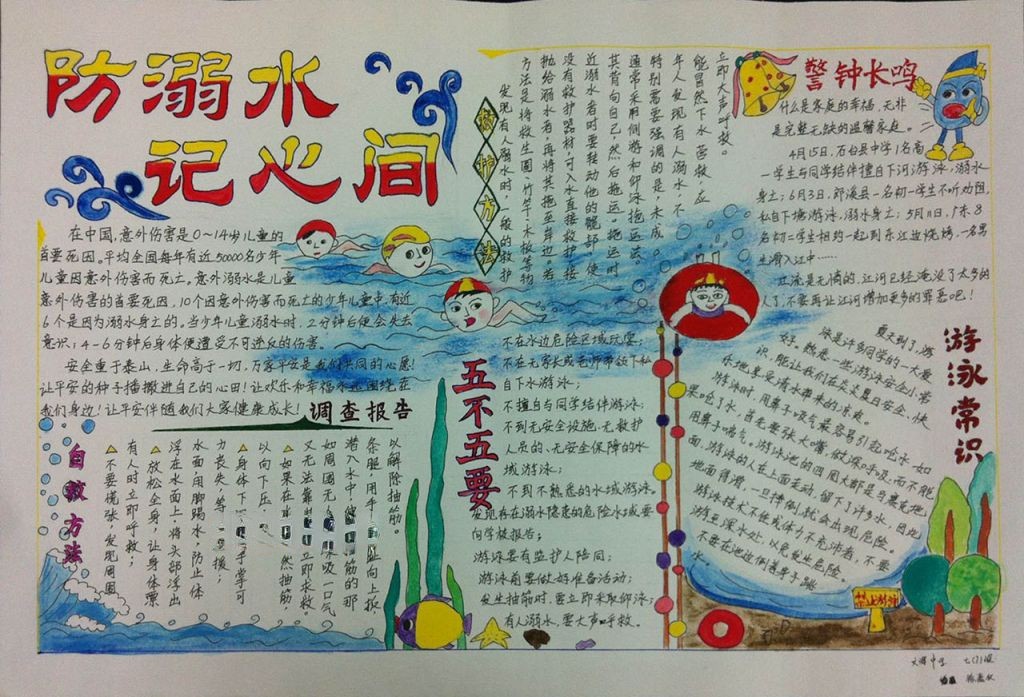 防溺水
记心间
在中国,意外伤害是0～14岁儿童的
首要死因。平均全国每年有近50000名少年
儿童因意外伤害而死亡。意外溺水是儿童
意外伤害的首要死因,10个因意外伤害而死亡的少年儿童中,有近
6个是因为溺水身亡的。当少年儿童溺水时,2分钟后便会失去
意识;4-6分钟后身体便遭受不可逆反的伤害。
安全重于泰山,生命高于一切,万家平安是我们共同的心愿!
让平安的种子播撒进自己的心田!让欢乐和幸福永远围绕在
我们身边!让平安伴随我们大家健康成长!
调查报告
自救方法
不要慌张,发现周围
有人时立即呼救;
放松全身,让身体漂
浮在水面上,将头部浮出
水面,用脚踢水,防止体
力丧失,等
身体下
以向下压
如果在
然抽筋
又无法靠
立即求救
如周围无
深吸一口气
潜入水中,伸
抽筋的那
条腿,用手
趾向上扳
以解除抽筋。
救护方法
发现有人溺水时,一般的救护
方法是将救生圈、竹竿、木板等物
抛给溺水者,再将其拖至岸边;若
没有救护器材,可入水直接救护。接
近溺水者时要转动他的髋部,使
其背向自己,然后拖运。拖运时
通常采用侧游和仰泳拖运法。
特别需要强调的是,未成
年人发现有人溺水,不
能冒然下水营救,应
立即大声呼救。
五不五要
不在水边危险区域玩耍;
不在无家长或老师带领下私
自下水游泳;
不擅自与同学结伴游泳;
不到无安全设施、无救护
人员的、无安全保障的水
域游泳;
不到不熟悉的水域游泳。
发现存在溺水隐患的危险水域要
向学校报告;
游泳要有监护人陪同;
游泳前要做好准备活动;
发生抽筋时,要立即采取仰泳;
有人溺水,要大声呼救。
警钟长鸣
什么是家庭的幸福,无非
是完整无缺的温馨家庭。
4月15日,石台县中学1名高
一学生与同学结伴擅自下河游泳,溺水
身亡;6月3日,郎溪县一名初一学生不听劝阻,
私自下塘游泳,溺水身亡;5月11日,广东8
名初二学生相约一起到东江边烧烤,一名男
生滑入江中……
江流是无情的,江河已经淹没了太多的
人了,不要再让江河增加更多的罪恶吧!
游泳常识
夏天到了,游
泳是许多同学的一大爱
好,熟悉一些游泳安全小常
识,能让我们在炎炎夏日安全、快
乐地享受清水带来的凉爽。
游泳时,用鼻子吸气最容易引起呛水,如
果呛了水,首先要张大嘴,做深呼吸,而不能
用鼻子喘气。游泳池的四周大都是马赛克地
面,游泳的人在上面走动,留了许多水,因此
地面很滑,一旦摔倒,就会出现危险。
游泳技术不佳或体力不充沛者,不要
游至深水处,以免发生危险。
不要在池边倒着身子跳
水。
禁止游泳